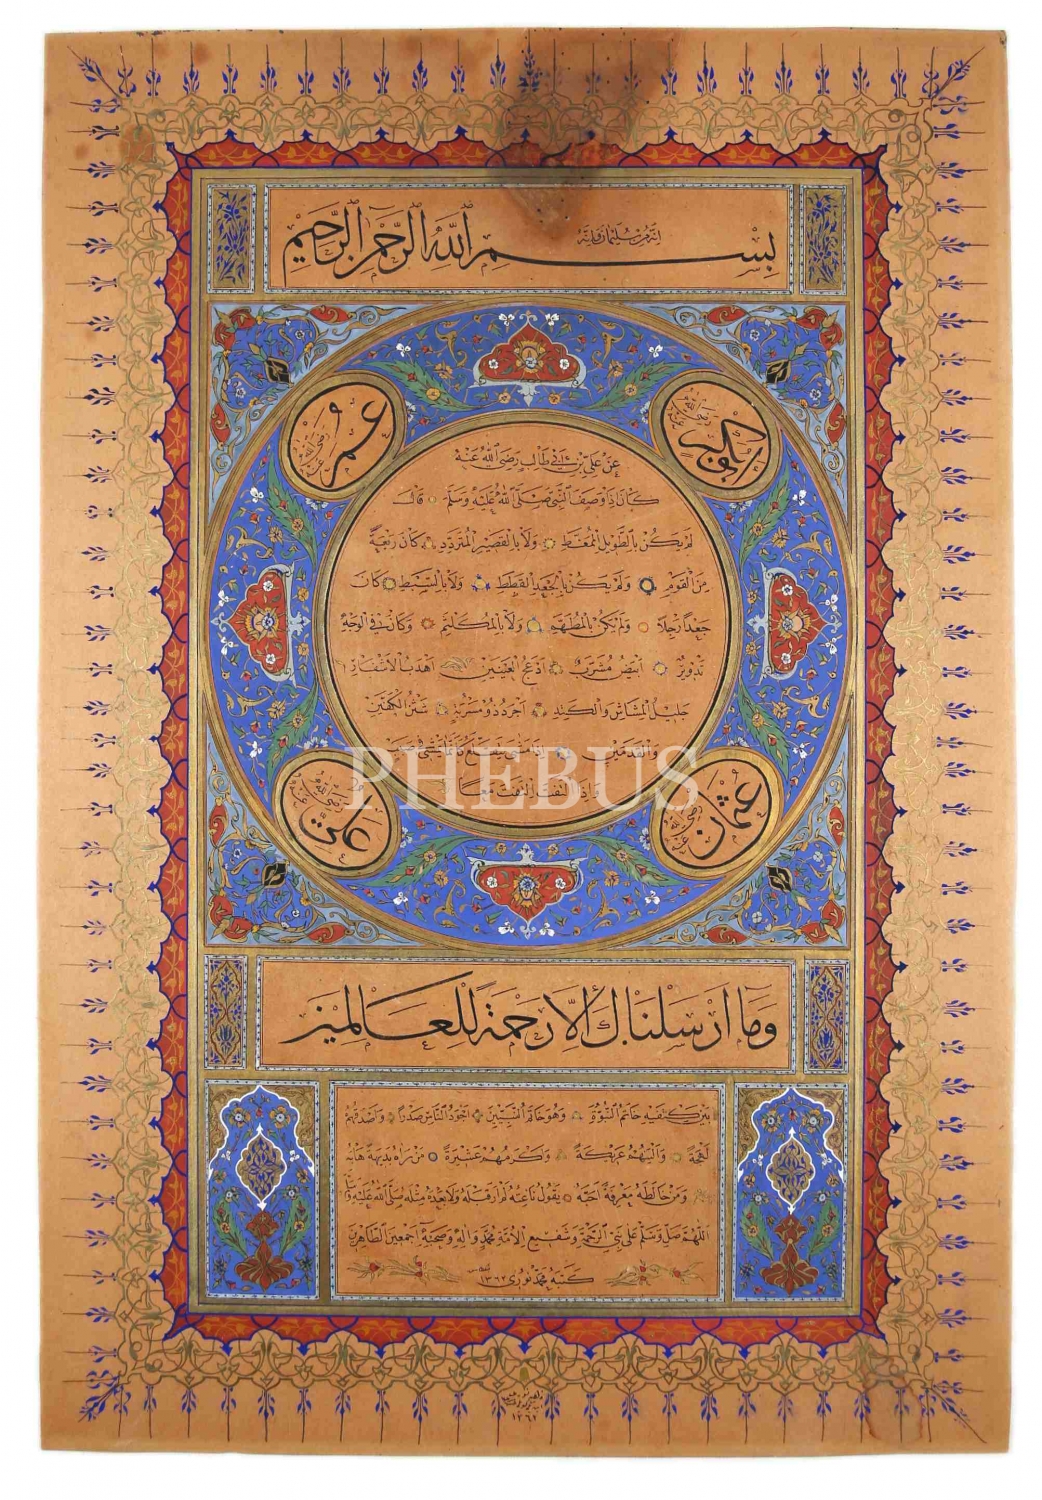 انه من سليمان وانه
بسم الله الرحمن الرحيم
ابى بكر رضى الله عنه
عمر رضى الله عنه
عن على بن ابى طالب رضى الله عنه
كان اذا وصف النبى صلى الله عليه وسلم قال
لم يكن بالطويل الممغط ولا بالقصير المتردد وكان ربعة
من القوم ولم يكن بالجعد القطط ولا بالسبط كان
جعدا رجلا ولم يكن بالمطهم ولا بالمكلثم وكان فى الوجه
تدوير ابيض مشرب ادعج العينين اهدب الاشفار
جليل المشاش والكتد اجرد ذو مسربة شثن الكفين
والقدمين اذا مشى
واذا التفت التفت معا
PHEBUS
عثمان رضى الله عنه
على رضى الله عنه
وما ارسلناك الا رحمة للعالمين
بين كتفيه خاتم النبوة وهو خاتم النبيين اجود الناس صدرا واصدقهم
لهجة والينهم عريكة واكرمهم عشيرة من راه بديهة هابه
ومن خالطه معرفة احبه يقول ناعته لم ار قبله ولا بعده مثله صلى الله عليه
اللهم صل وسلم على نبى الرحمة وشفيع الامة محمد واله وصحبه اجمعين الطاهرين
كتبه محمد نورى ١٣٦٢